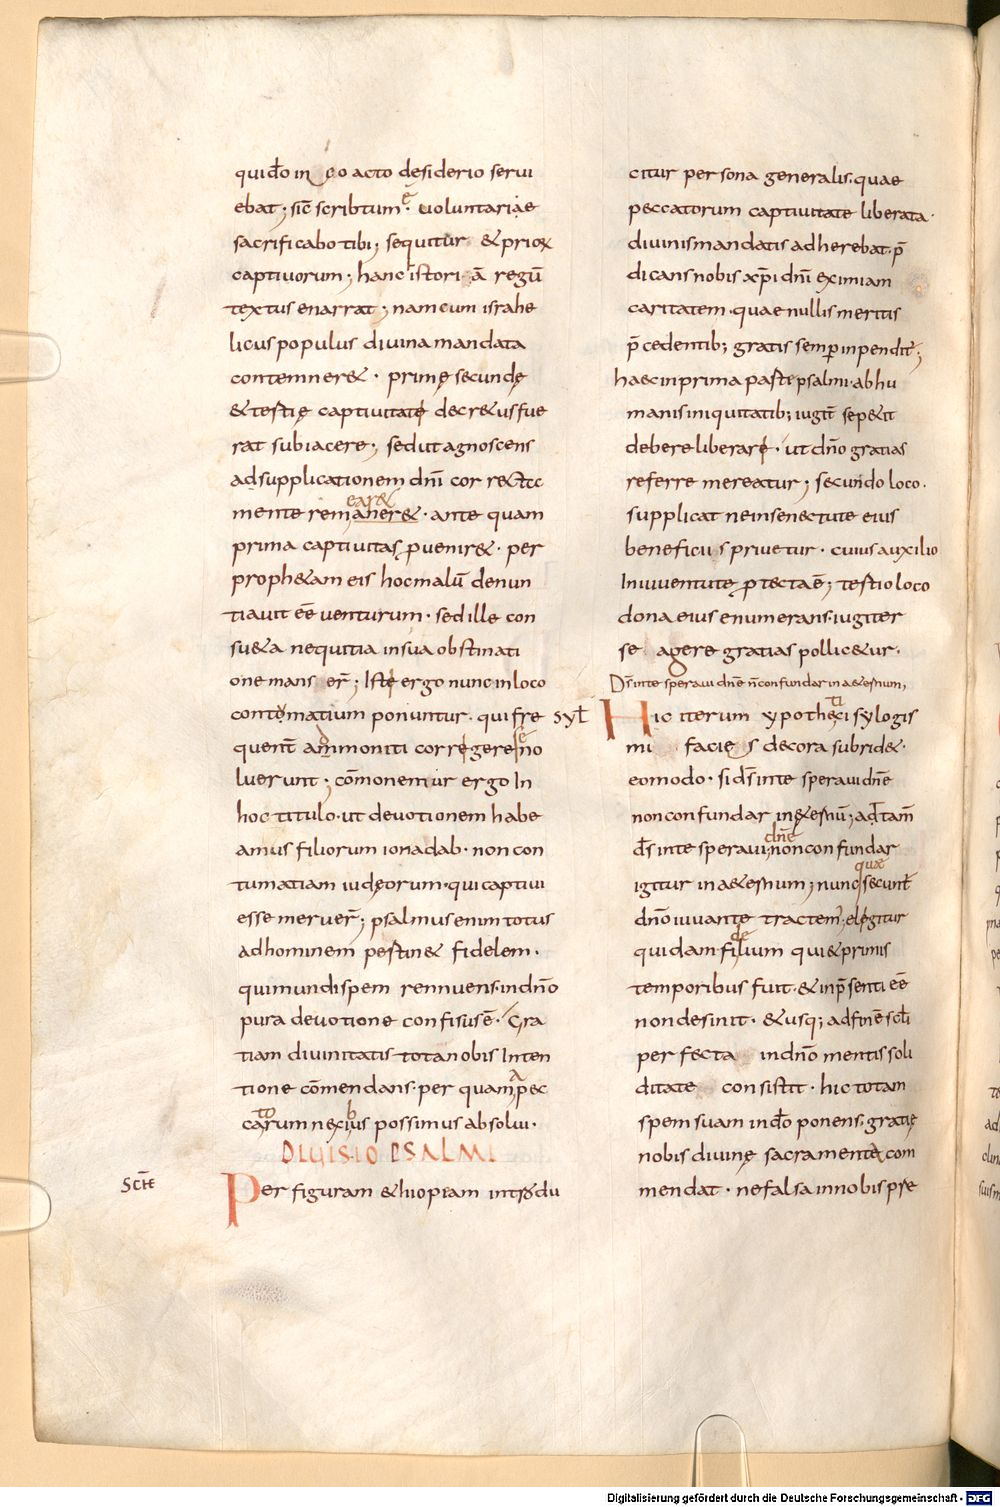 quidō in eo acto desiderio servi
ebat; sic̄ scribtum ē· voluntariae
sacrificabo tibi; sequitur & priorꝝ
captivorum; hanc istori ā regū
textus enarrat; nam cum israhe
licus populus divina mandata
contemner&· primę secundę
& testię captivitate decr&us fue
rat subiacere; sed ut agnoscens
ad supplicationem dn̄i correctæ
eare&
mente remaner&· ante quam
prima captivitas pvenir&· per
proph&am eis hoc malū denun
tiavit ēē venturum· sed ille con
su&a nequitia in sua obstinati
one manserꝭ; Iste ergo nunc in loco
contomatium ponuntur· qui fre
quent̄ ammoniti corregere se no
luerunt; com̄onemur ergo In
hoc titulo· ut devotionem habe
amus filiorum ionadab· non con
tumatiam iudęorum· qui captivi
esse meruer̄; psalmus enim totus
ad hominem pestin& fidelem·
qui mundi spem rennuens· in dn̄o
pura devotione confisus ē· Gra
tiam divinitatis tota nobis Inten
tione com̄endans· per quam a pec
catorum nexibus possimus absolvi·
DIUISIO PSALMI
Scīte
Per figuram &hiopiam introdu
citur persona generalis· quae
peccatorum captivitate liberata·
divinis mandatis adherebat· p̄
dicans nobis xp̄i dn̄i eximiam
caritatem· quae nullis meritis
p̄cedentib; gratis semp inpendit̄;
haec in prima paste psalmi· ab hu
manis iniquitatib; iugit̄ se p&it
debere liberare· ut dn̄o gratias
referre mereatur; secundo loco·
supplicat ne in senectute eius
beneficiis privetur· cuius auxilio
In iuventute ptecta ē; testio loco
dona eius enumerans· iugiter
se agere gratias pollic&ur·
Ds̄ in te speravi dn̄e n̄ confundar in a&esnum;
syl̄
Hic iterum ypotheticisylogis
mi facies decora subrid&·
eo modo· si ds̄ in te speravi dn̄e
non confundar in ę&esnū; adtam̄
ds̄ in te speravi dn̄e non confundar
igitur in a&esnum; nunc quae secunt̄
dn̄o iuvante tractem̄; elegitur
quidam fidelium qui & primis
temporibus fuit· & inp̄senti ēē
non desinit· & usq; ad finē scl̄i
perfecta in dn̄o mentis soli
ditate consistit· hic totam
spem suam in dō ponens· gratię
nobis divinę sacramenta com
mendat· ne falsa in nobis pre
Digitalisierung gefördert durch die Deutsche Forschungsgemeinschaft - DFG